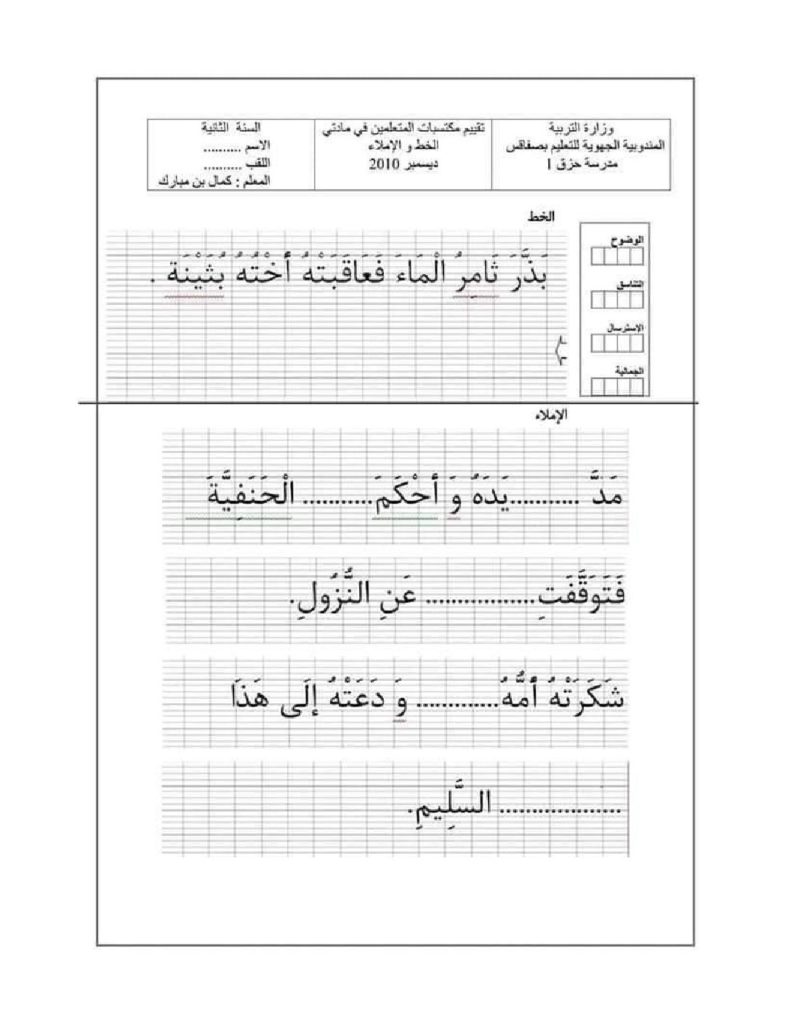 وزارة التربية
المندوبية الجهوية للتعليم بصفاقس
مدرسة حزق 1
تقييم مكتسبات المتعلمين في مادتي
الخط و الإملاء
ديسمبر 2010
السنة الثانية
الاسم ..........
اللقب ..........
المعلم : كمال بن مبارك
الخط
الوضوح
التناسق
الاسترسال
الجمالية
بَذَّرَ ثَامِرُ الْمَاءَ فَعَاقَبَتْهُ أُخْتُهُ بُثَيْنَة .
الإملاء
مَدَّ ...........يَدَهُ وَ أَحْكَمَ........... الْحَنَفِيَّةَ
فَتَوَقَّفَتِ................. عَنِ النُّزُولِ.
شَكَرَتْهُ أُمُّهُ............. وَ دَعَتْهُ إلَى هَذَا
................... السَّلِيمِ.